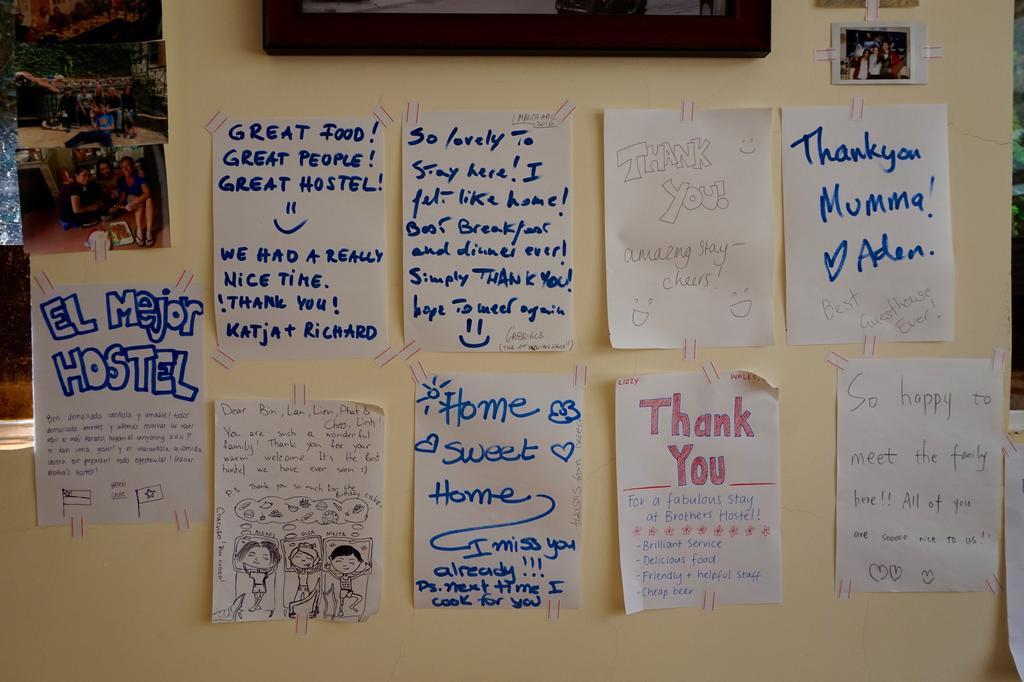 GREAT FOOD!
GREAT PEOPLE!
GREAT HOSTEL!
WE HAD A REALLY
NICE TIME.
!THANK YOU!
KATJA + RICHARD
MARCH APR.
2016
So lovely To
Stay here! I
felt like home!
Best Breakfast
and dinner ever!
Simply THANK YOU!
hope to meet again
GABRIELS
THANK
YOU!
amazing stay-
cheers!
Thankyou
Mumma!
Aden.
Best
Guesthouse
Ever!
EL Mejor
HOSTEL
Bien
chile
Dear Bin, Lan, Lien, Phat &
Cheo, Linh!
You are such a wonderful
family! Thank you for your
warm welcome. It's the best
hostel we have ever seen :)
P.S. Thank you so much for the Birthday cakes
OLGA
NIKITA
Home
Sweet
Home
I miss you
already!!!
Ps. next time I
cook for you
LIZZY WALES,
Thank
You
For a fabulous stay
at Brothers Hostel!
- Brilliant Service
- Delicious food
- Friendly + helpful staff
- Cheap beer
So happy to
meet the family
here!! All of you
are soooo nice to us!!